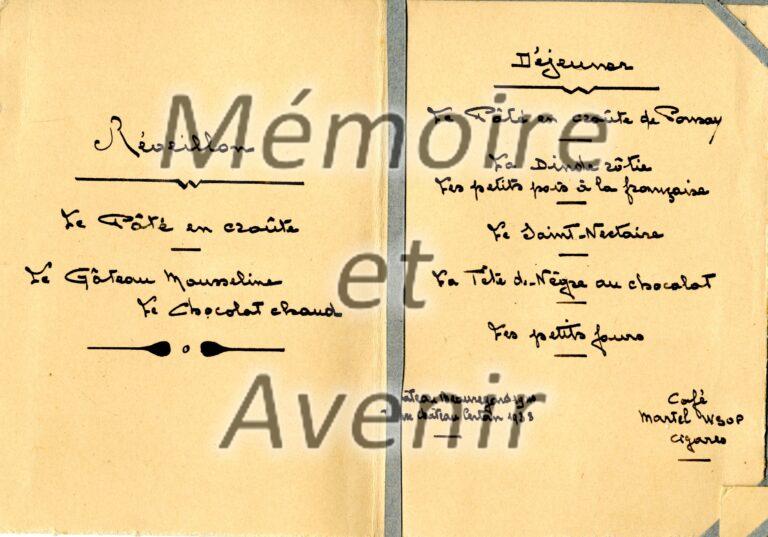 Réveillon
Le Pâté en croûte
Le Gâteau Mousseline
Le Chocolat chaud
Déjeuner
Le Pâté en croûte de
La Dinde rôtie
Les petits pois à la française
Le Saint-Nectaire
La Tête de-Nègre au chocolat
Les petits fours
Château
Café
Martel VSOP
Cigares
Mémoire
et
Avenir